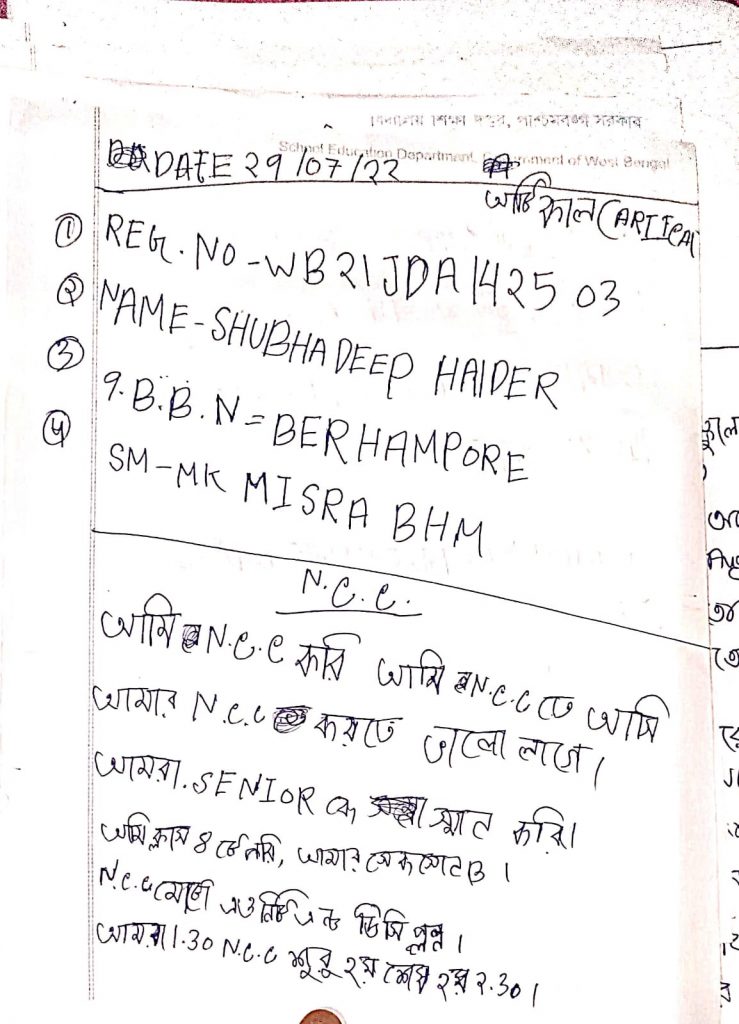 বিদ্যালয় শিক্ষা দপ্তর, পশ্চিমবঙ্গ সরকার
School Education Department, Government of West Bengal
DATE 29/07/22
আর্টিকাল (ARTICAL
① REG. NO - WB21JDA142503
② NAME - SHUBHADEEP HALDER
③ 9.B.B.N = BERHAMPORE
④ SM - MK MISRA BHM
N.C.C.
আমি N.C.C করি আমি N.C.C তে আসি
আমার N.C.C করতে ভালো লাগে।
আমরা. SENIOR কে স্মান করি।
আমি ক্লাস 8 তে পরি, আমার সেকশেন B।
N.C.C মোটো একতা ডিসিপ্লন।
আমরা 1.30 N.C.C শুরু হয় শেষ হয় ২.30।